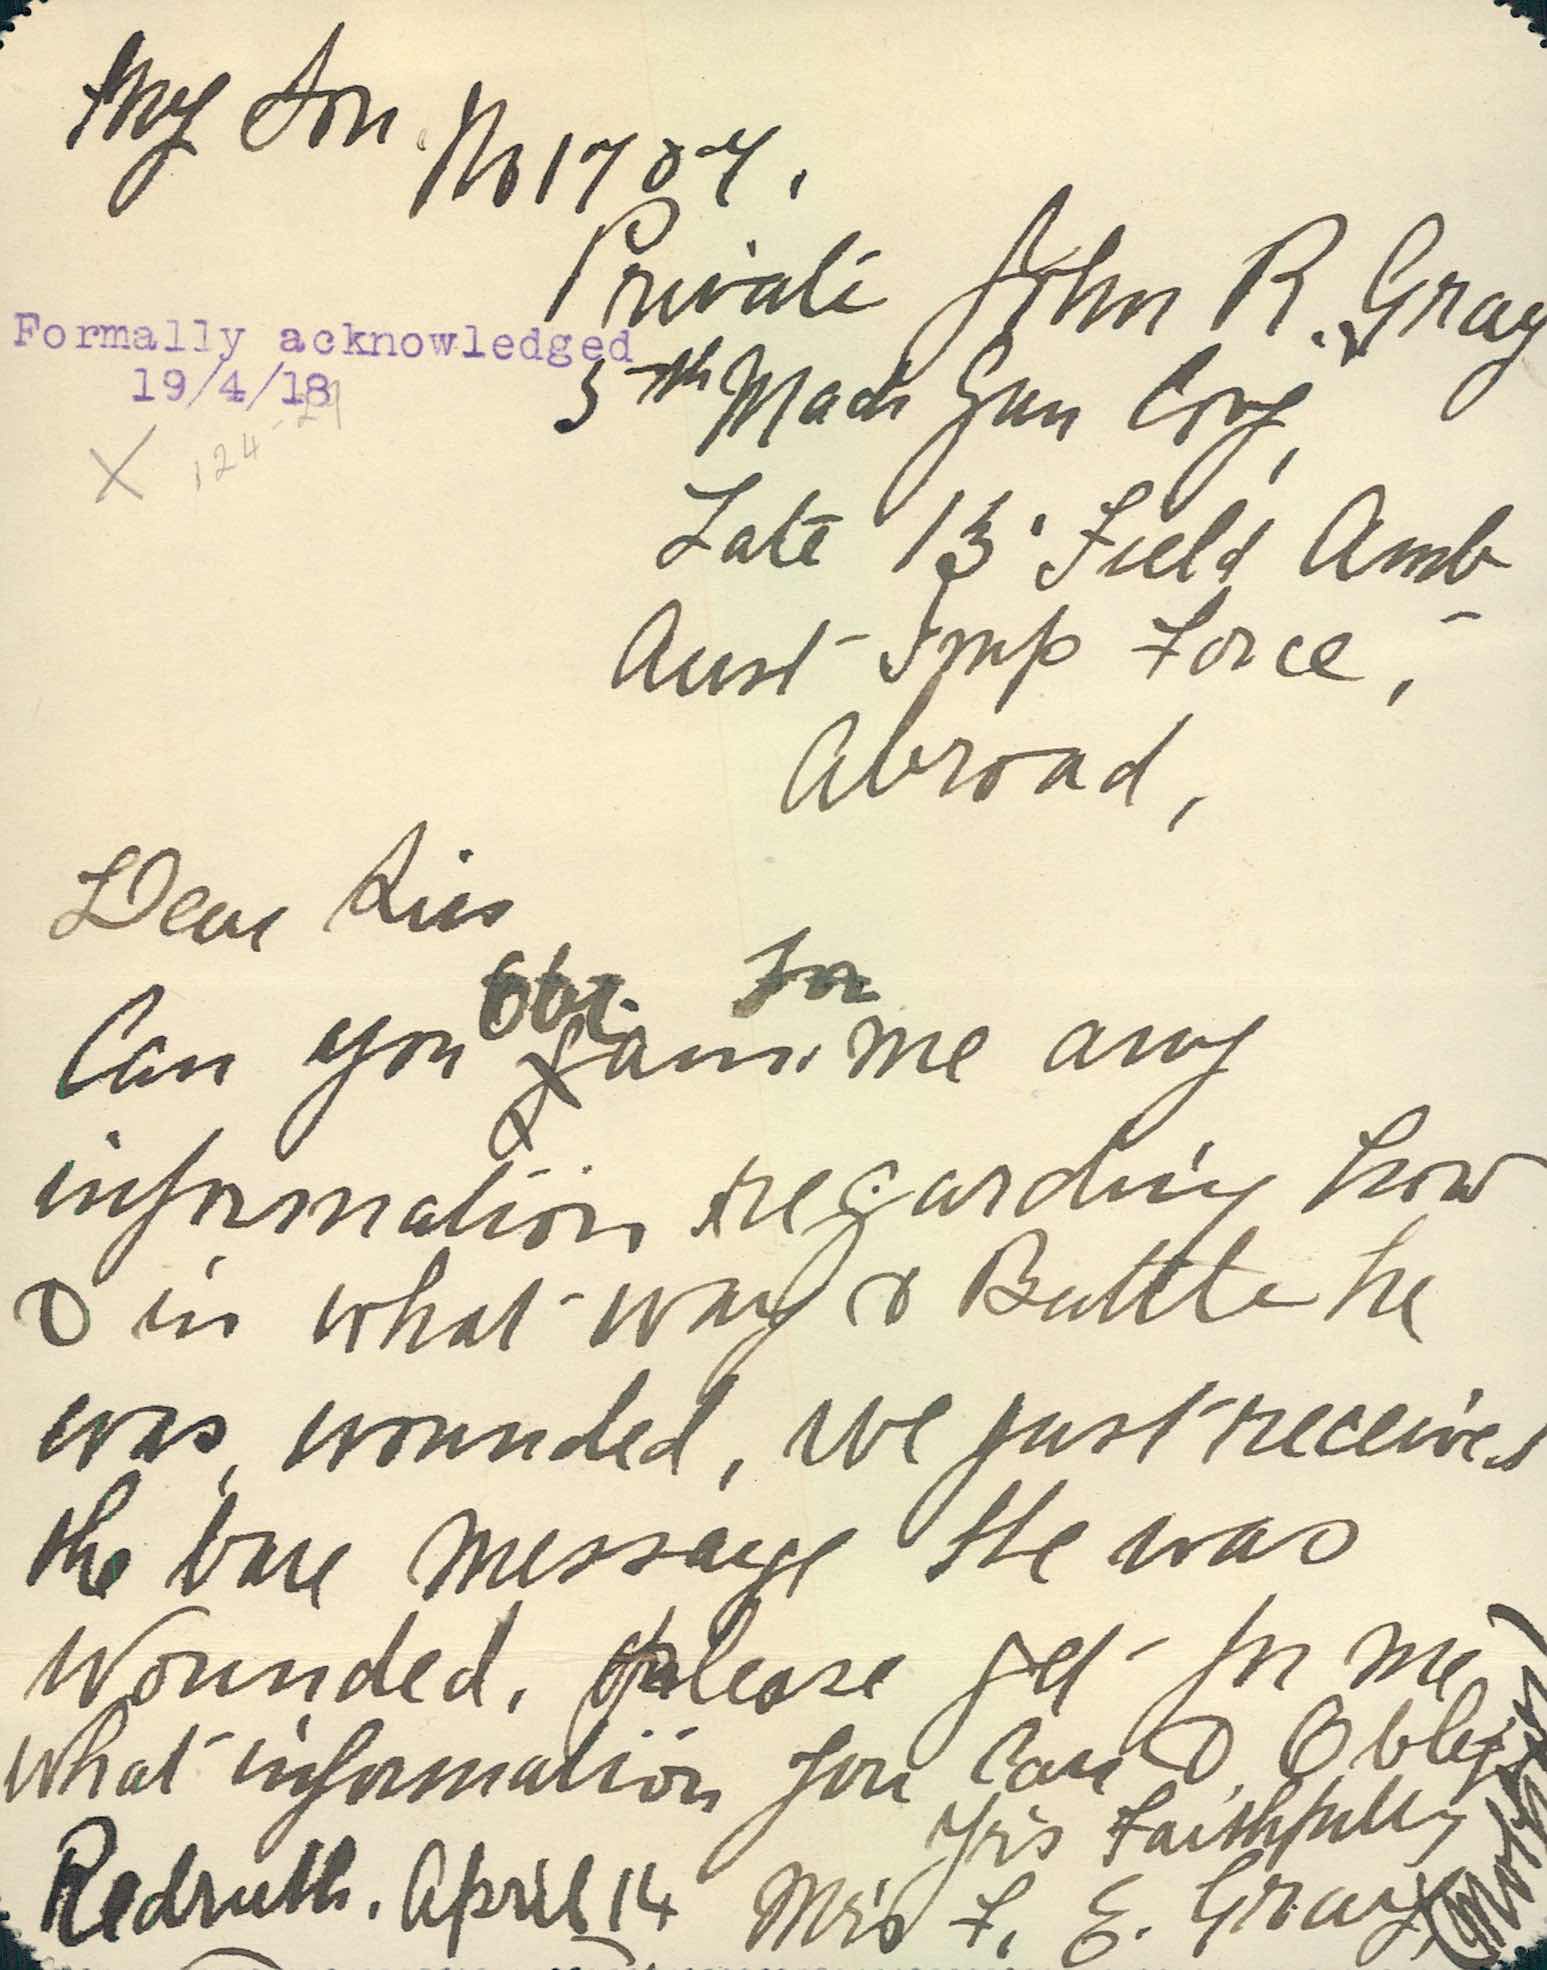 My Son No 1784,
Private John R. Gray
Formally acknowledged
19/4/18
5th Mach Gun Coy,
X 124-29
Late 13 Field Amb
Aust Imp Force,
Abroad,
Dear Sirs
Can you obt. for me any
information regarding how
& in what way & Battle he
was wounded, we just received
the bare message He was
Wounded. please get for me
what information you can & Oblige
Yrs Faithfully
Redruth. April 14 Mrs F. E. Gray
(Mother)